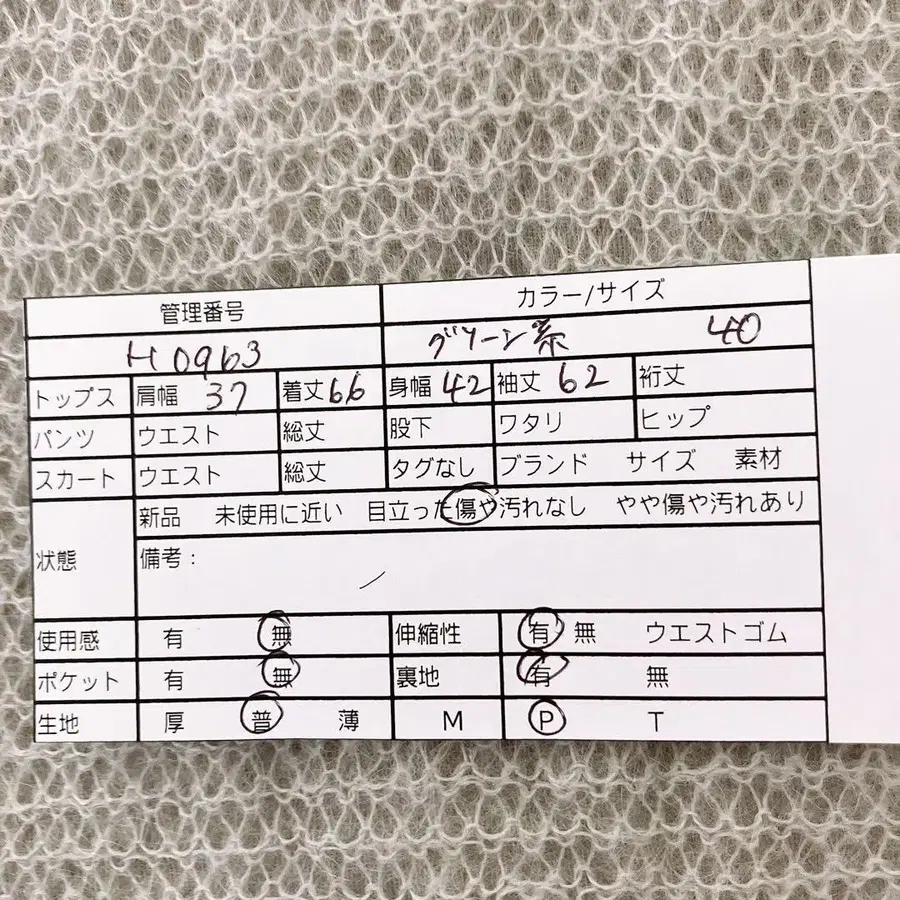 管理番号 カラー/サイズ
H0963 グリーン系 40
トップス 肩幅 37 着丈 66 身幅 42 袖丈 62 裄丈
パンツ ウエスト 総丈 股下 ワタリ ヒップ
スカート ウエスト 総丈 タグなし ブランド サイズ 素材
状態 新品 未使用に近い 目立った傷や汚れなし やや傷や汚れあり
備考:
使用感 有 無 伸縮性 有 無 ウエストゴム
ポケット 有 無 裏地 有 無
生地 厚 普 薄 M P T